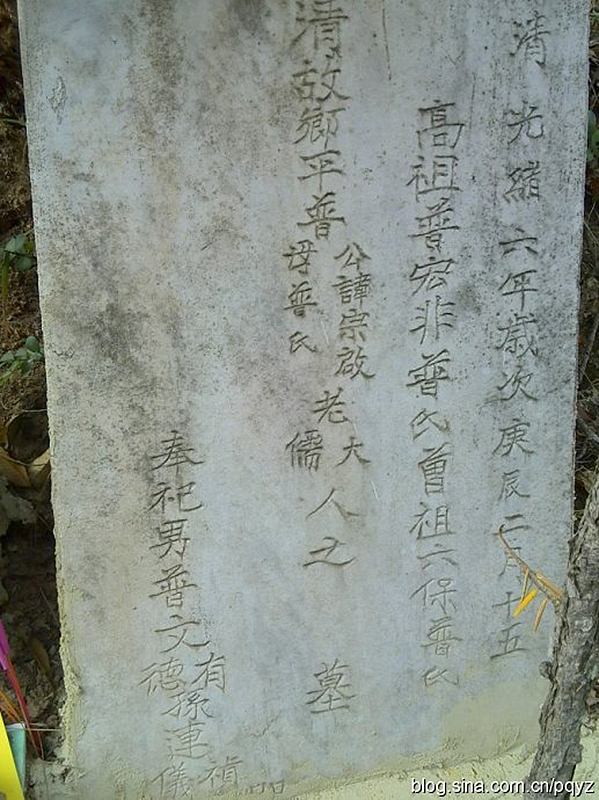 清光緒六年歲次庚辰二月十五
高祖普宏非普氏曾祖六保普氏
清故鄉平普
公諱宗啟
母普氏
老大
儒
人之墓
奉祀男普文
有
德
孫連
禎
儀
blog.sina.com.cn/pqyz